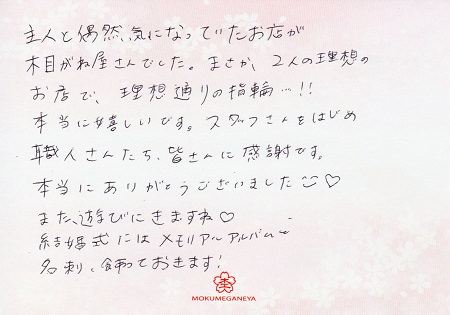 主人と偶然気になっていたお店が
木目がね屋さんでした。まさか、2人の理想の
お店で、理想通りの指輪…!!
本当に嬉しいです。スタッフさんをはじめ
職人さんたち、皆さんに感謝です。
本当にありがとうございました♡
また、遊びにきますね♡
結婚式にはメモリアルアルバムと
名刺、飾っておきます!
MOKUMEGANEYA